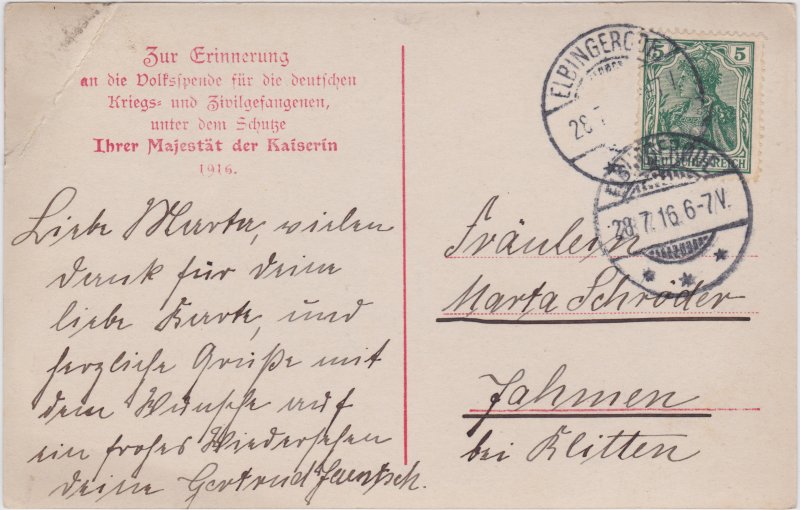 Zur Erinnerung
an die Volksspende für die deutschen
Kriegs- und Zivilgefangenen,
unter dem Schutze
Ihrer Majestät der Kaiserin
1916.
Liebe Marta, vielen
dank für deine
liebe Karte, und
herzliche Grüße mit
dem Wunsche auf
ein frohes Wiedersehen
deine Gertrud
ELBINGERODE
28.7
5 5
DEUTSCHES REICH
ELBINGERODE
28.7.16.6-7V.
Fräulein
Marta Schröder
Jahmen
bei Klitten